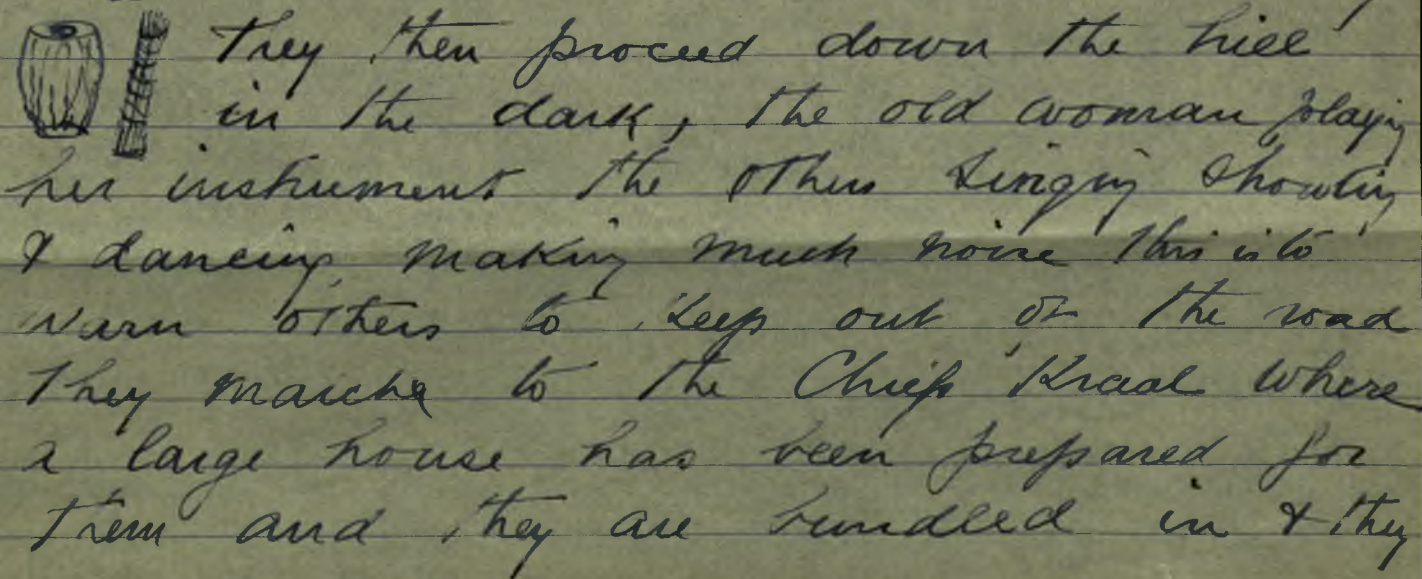 They then proceed down the hill
in the dark, the old woman playing
her instrument the others singing shouting
& dancing making much noise this is to
warn others to keep out of the road
They marche to the Chiefs Kraal where
a large house has been prepared for
them and they are bundled in & they